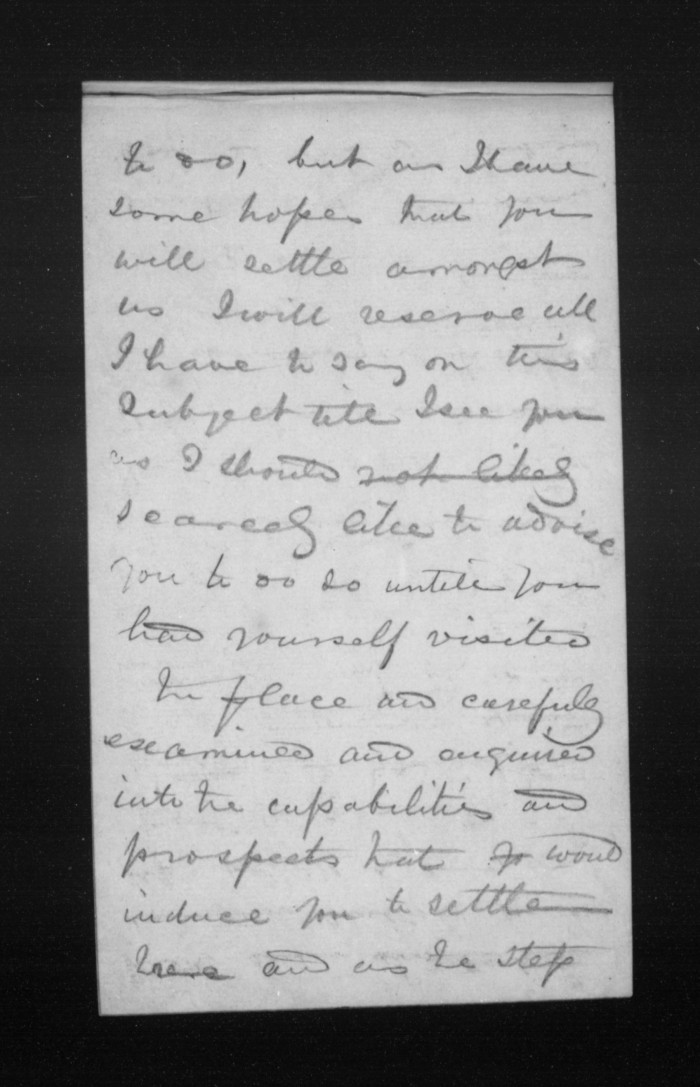 to do, but as I have
some hopes that you
will settle amongst
us I will reserve all
I have to say on this
subject till I see you
as I should not likely
scarcely like to advise
you to do so untill you
had yourself visited
the place and carefully
examined and enquired
into the capabilities and
prospects that would
induce you to settle
here and as the step